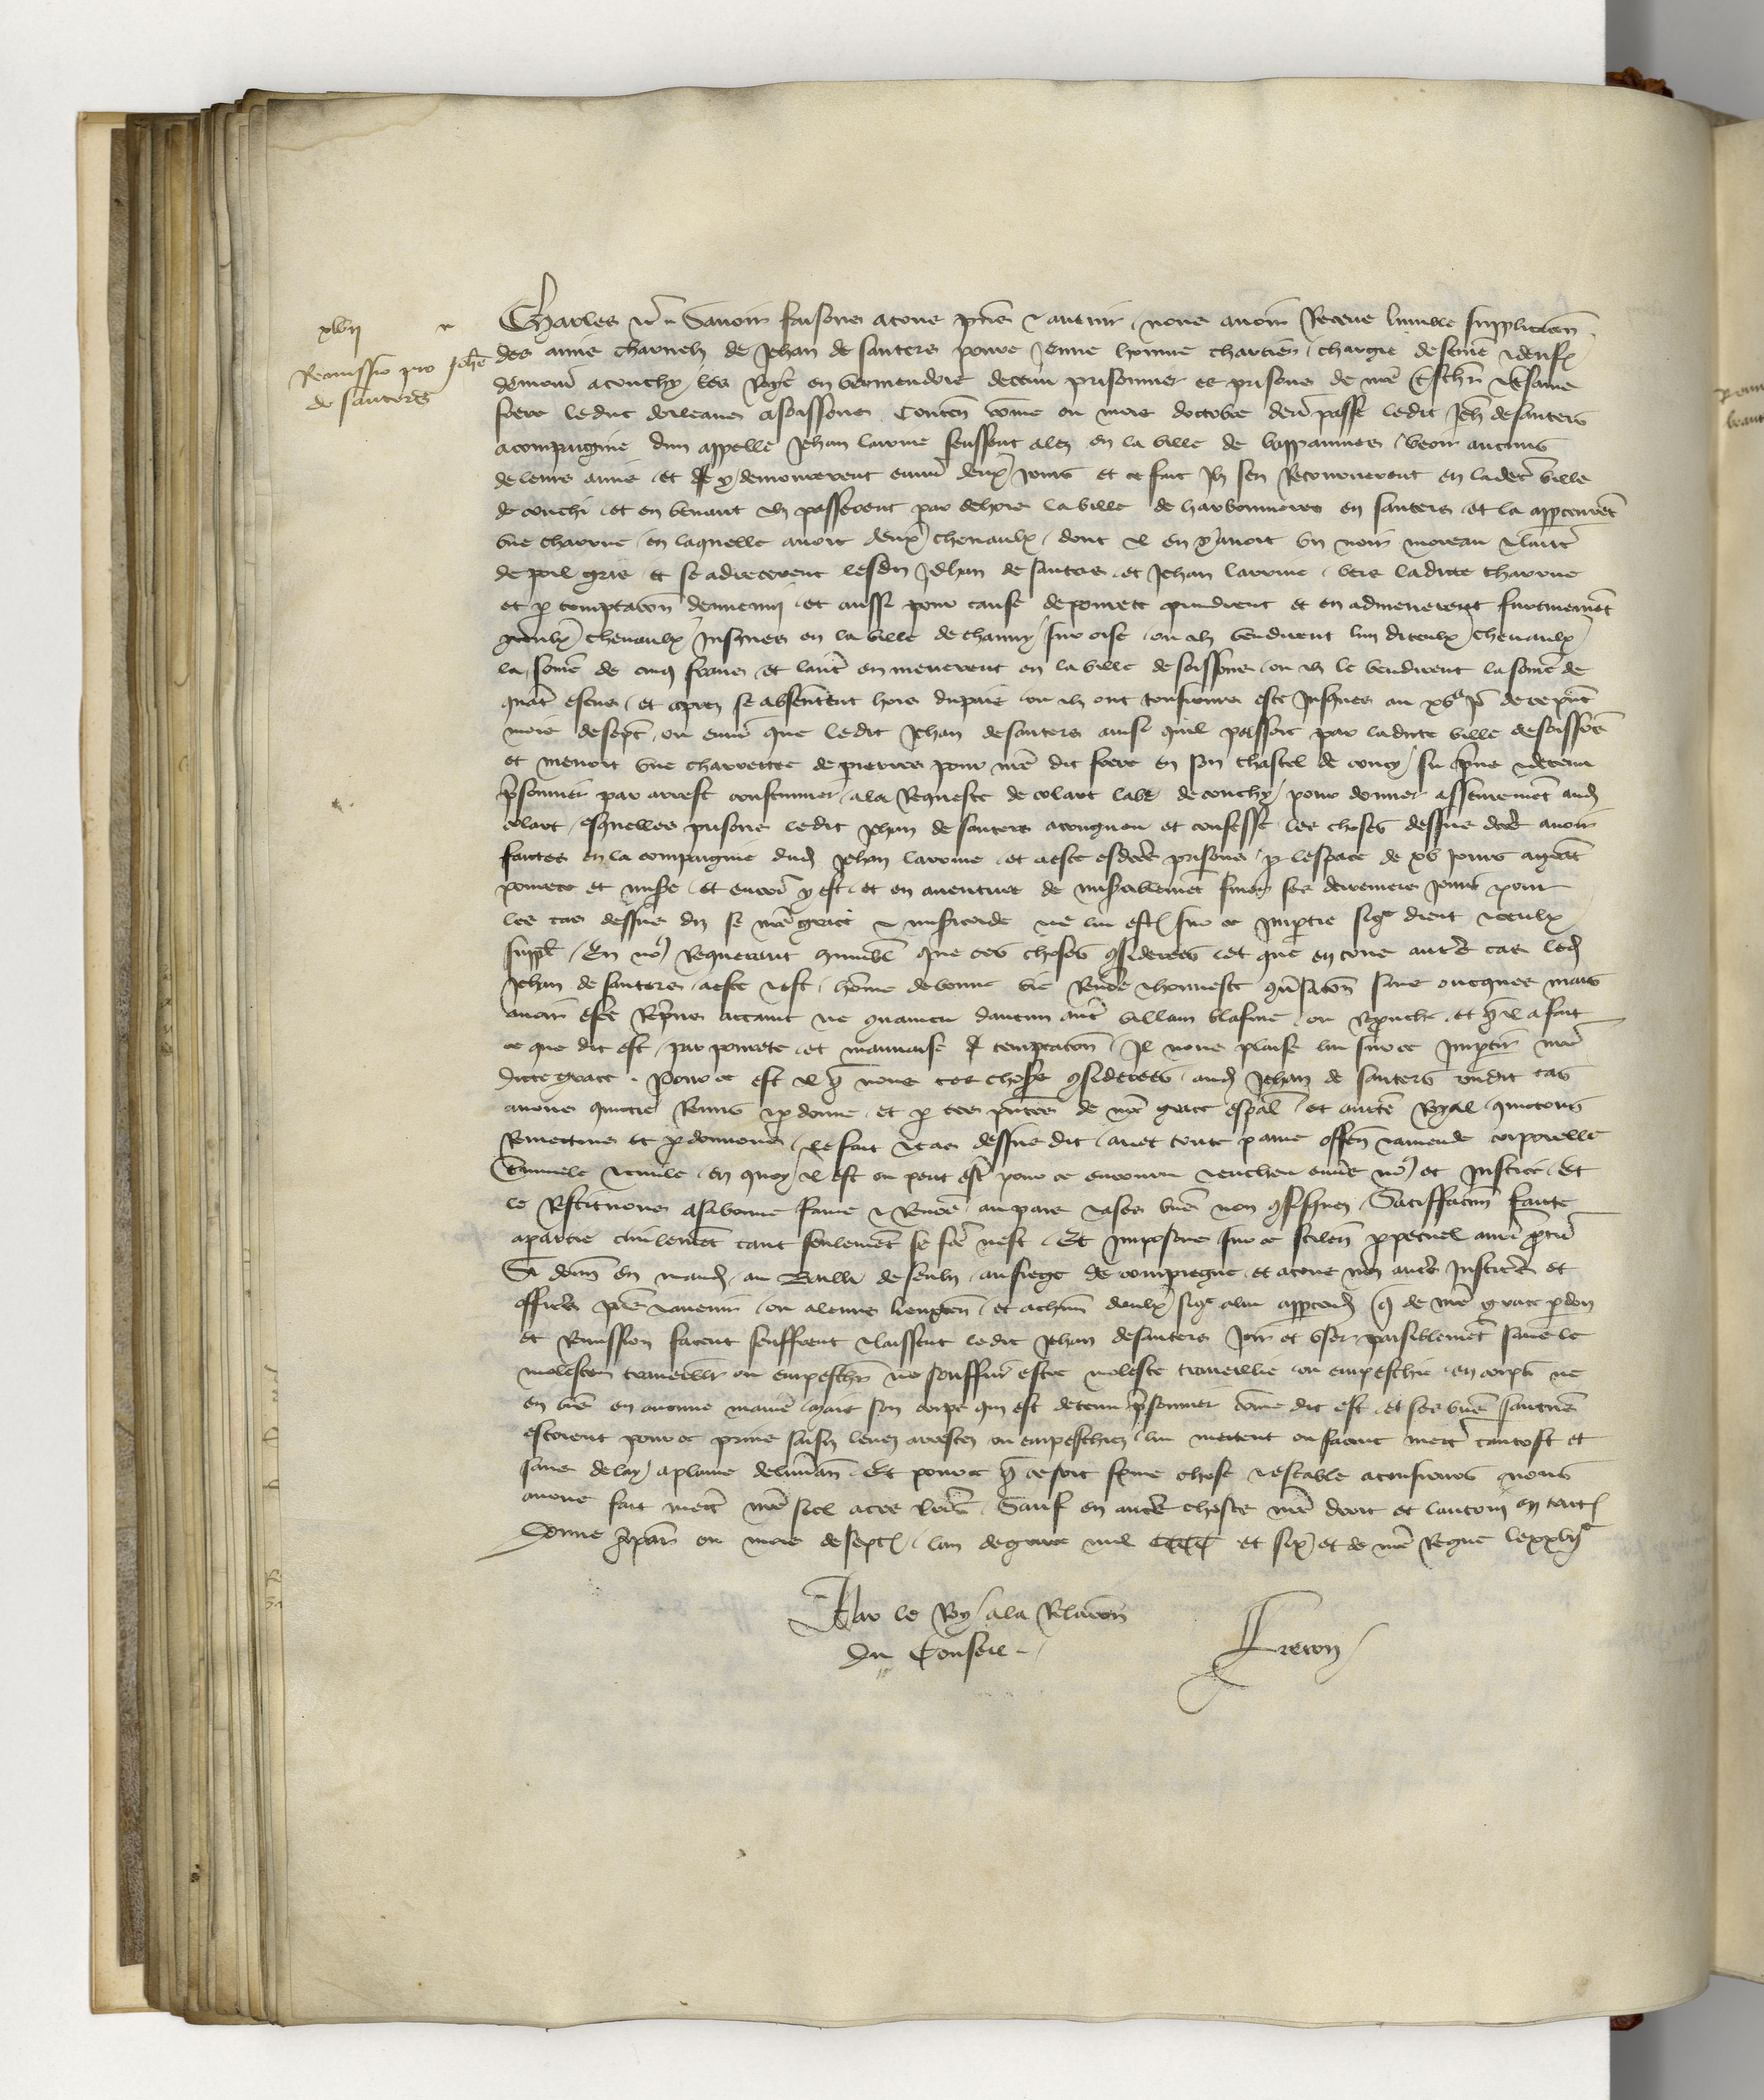 xlvii
Remissio pro Johe
de santers
Charles etc. Savoir faisons a tous pns et avenir nous avoir Receue lumble supplicacon
des amis charnelz de Jehan de santers povre Jeune homme chartier chargie de feme et denfs
demour a couchy les Roye en vermendois detenu prisonnier es prisons de nre et
frere le duc dorleans a soissons Conten come ou mois doctobre derr passe ledit Jeh de santers
acompaignie dun appelle Jehan larme feussent alez en la ville de bappaumes veoir aucuns
de leurs amis et y demourerent envir deux Jours et ce fait Ilz sen Retournerent en ladte ville
de couchi et en venant ilz passerent par dehors la ville de harbonnieres en santers et la apperceurent
une charrue en laquelle avoit deux chevaulx dont il en y avoit un noir moreau et lautre
de poil gris et se adrecerent lesdiz Jehan de santers et Jehan larme vers ladicte charrue
et p temptacon dennemy et aussi pour cause de povrete prindrent et en admenerent furtivement
yceulx chevaulx Jusques en la ville de chauny sur oise ou ilz vendirent lun diceulx chevaulx
la some de cinq frans et lautre en menerent en la ville de soissons ou ilz le vendirent la some de
quatre escus et apres se absenterent hors du pais ou ilz ont tousiours este Jusques au xve Jo de ce pnt
mois de sept ou envir que ledit Jehan de santers ainsi quil passoit par ladicte ville de soissons
et menoit une charrettee de pierres pour nre dit frere en son chastel de coucy fu prins et detenu
prisonnier par arrest coustumier a la Requeste de colart labe de couchy pour donner asseurement aud
colart esquelles prisons ledit Jehan de santers a congneu et confesse les choses dessus dctes avoir
faictes en la compaignie dud Jehan larme et a este esdctes prisons p lespace de xv Jours a grant
povrete et misere et encores y est et en aventure de miserablement finer ses derreniers Jours pour
les cas dessus diz se nre grace et misericorde ne lui est sur ce Impartie sicomme dient yceulx
suppl En nous Requerant humblement que ces choses considerees et que en tous autres cas led
Jehan de santers a este et est home de bonne vie Renomee et honneste conversacon sans oncques mais
avoir este Repris attaint ne convaincu daucun autre villain blasme ou Reprouche et quil a fait
ce que dit est par povrete et mauvaise temptacon Il nous plaise lui sur ce Impartir nre
dicte grace Pour ce est il que nous ces choses considerees aud Jehan de santers oudit cas
avons quictie Remis et pdonne et p ces pntes de nre grace espal et aucte Royal quictons
Remettons et pdonnons le fait et cas dessus dit avec toute paine offense et amende corporelle
criminele et civile en quoy il est ou peut est pour ce encouru et encheu envers nous et Justice Et
le Restituons a sa bonne fame et Renomee au pais et a ses biens non confisquez Satisffacion faicte
a partie civilement tant seulement se fce nest Et Imposons sur ce silence ppetuel a nre pcur
Si donns en mand au Bailli de senliz au siege de compiegne et a tous noz autres Justiciers et
officiers pns et avenir ou a leurs lieuxten et achun deulx sicomme a lui appartendra que de nre grace pdon
et Remission facent seuffrent et laissent ledit Jehan de santers Joir et user paisiblement sans le
molester travaillier ou empescher ne souffrir estre moleste travaillie ou empeschie en corps ne
en biens en aucune maniere mais son corps qui est detenu prisonnier come dit est et ses biens saucuns
estoient pour ce prins saisiz levez arrestez ou empeschiez lui mettent ou facent mettre tantost et
sans delay a plaine delivrance Et pour ce que ce soit ferme chose et estable a tousiours nous
avons fait mettre nre seel a ces lettres Sauf en autres choses nre droit et lautruy en toutes
Donne a Paris ou mois de sept lan de grace mil cccc et six et de nre Regne le xxvije
Par le Roy a la Relacon
du Conseil
Freron